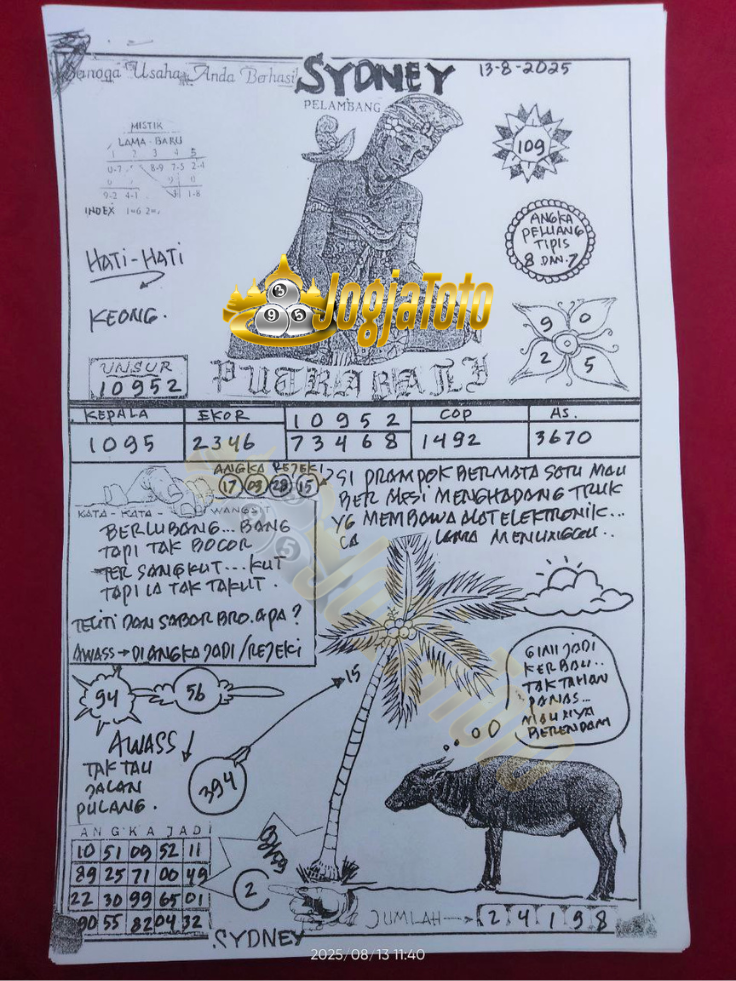 Semoga Usaha Anda Berhasil
SYDNEY
13-8-2025
PELAMBANG
MISTIK
LAMA - BARU
1 2 3 4 5
0-7 8-9 7-5 2-4
9-2 4-1 1-8
INDEX 1=6 2=
109
ANGKA
PELUANG
TIPIS
8 DAN 7
HATI-HATI
KEONG.
JogjaToto
9 0
2 5
UNSUR
10952
PUTRA BALI
KEPALA EKOR 10952 COP AS.
1095 2346 73468 1492 3670
ANGKA REJEKI
17 09 28 15
KATA - KATA - WANGSIT
BERLUBANG... BANG
TAPI TAK BOCOR
TERSANGKUT... KUT
TAPI IA TAK TAKUT.
TELITI DAN SABAR BRO. APA?
AWASS → DI ANGKA JADI / REJEKI
SI PRAMPOK BERMATA SATU MAU
BERAKSI MENGHADANG TRUK
YG MEMBAWA ALAT ELEKTRONIK...
LAMA MENUNGGU..
15
94
56
AWASS
TAK TAU
JALAN
PULANG.
394
GINI JADI
KERBAU..
TAK TAHAN
PANAS...
MAUNYA
BERENDAM
ANGKA JADI
10 51 09 52 11
89 25 71 00 49
22 30 99 65 01
90 55 82 04 32
2
JUMLAH → 24198
SYDNEY
2025/08/13 11:40